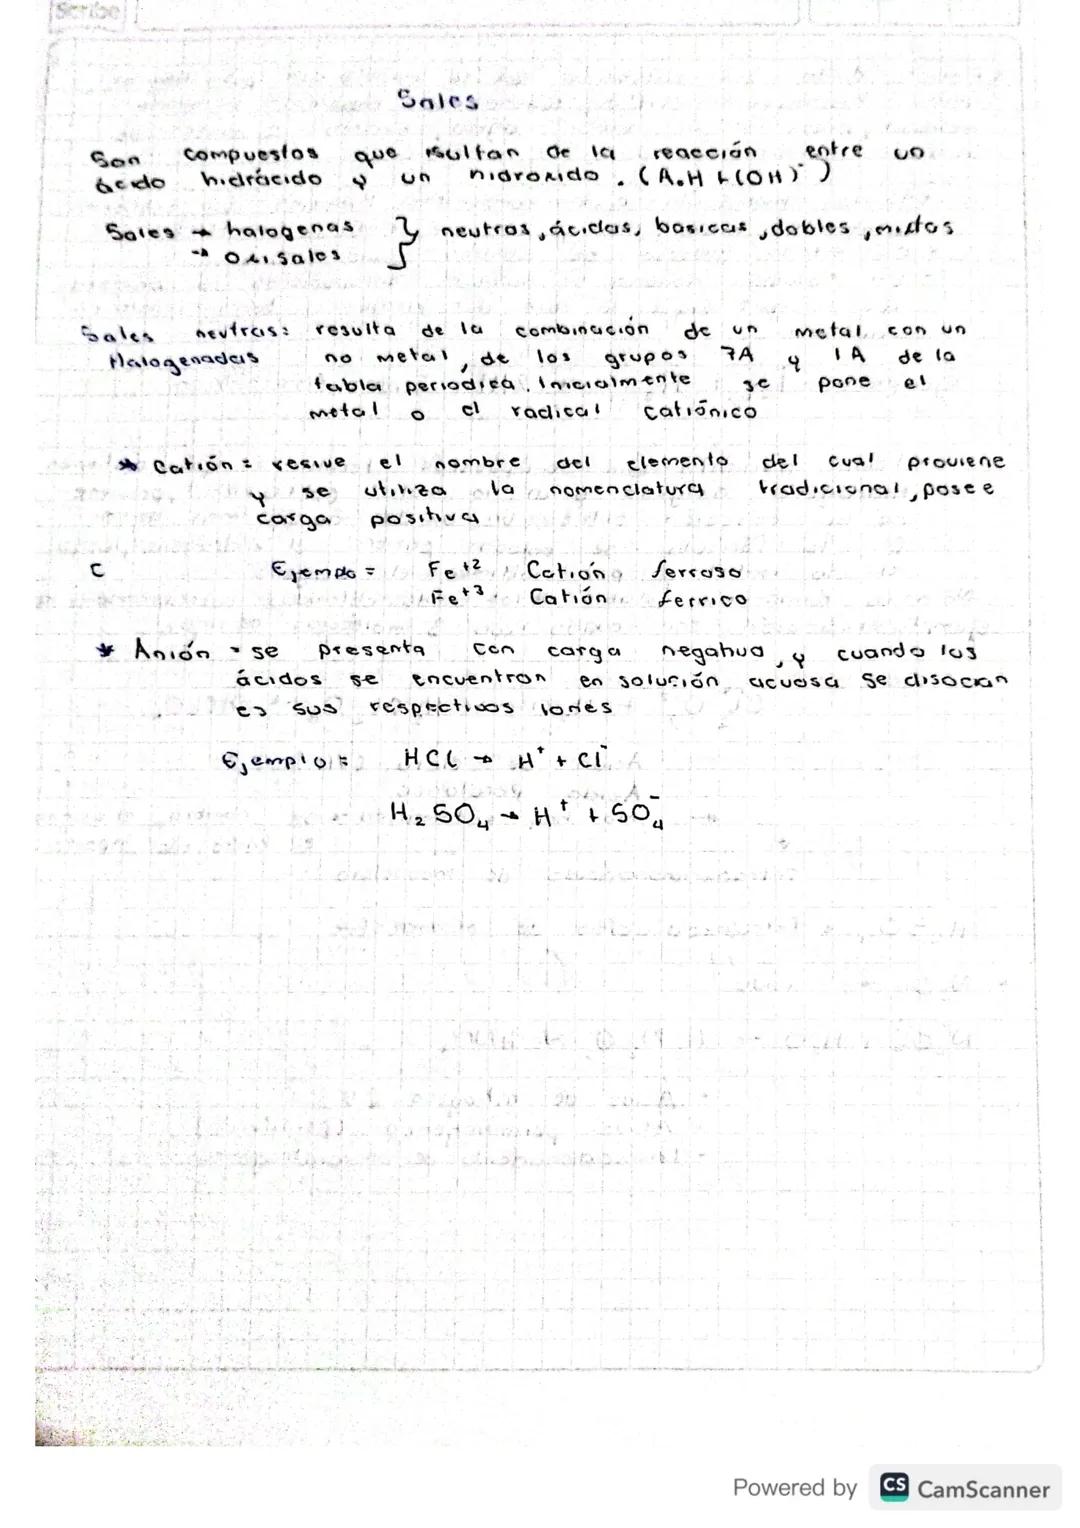 Scribe
Sales
Son compuestos que resultan de la reacción entre un
ácido hidrácido y un hidroxido. (A.H + (OH)⁻)
Sales → halogenas } neutras, ácidas, basicas, dobles, mixtas
→ Oxisales
Sales neutras: resulta de la combinación de un metal con un
Halogenadas no metal, de los grupos 7A y 1A de la
tabla periodica. Inicialmente se pone el
metal o el radical catiónico
* Catión = resive el nombre del elemento del cual proviene
y se utiliza la nomenclatura tradicional, posee
carga positiva
C Ejemplo = Fe⁺² Catión ferroso
Fe⁺³ Catión ferrico
* Anión = se presenta con carga negativa, y cuando los
ácidos se encuentran en solución acuosa se disocian
es sus respectivos iones
Ejemplo = HCl → H⁺ + Cl⁻
H₂SO₄ → H⁺ + SO₄⁻
Powered by CS CamScanner